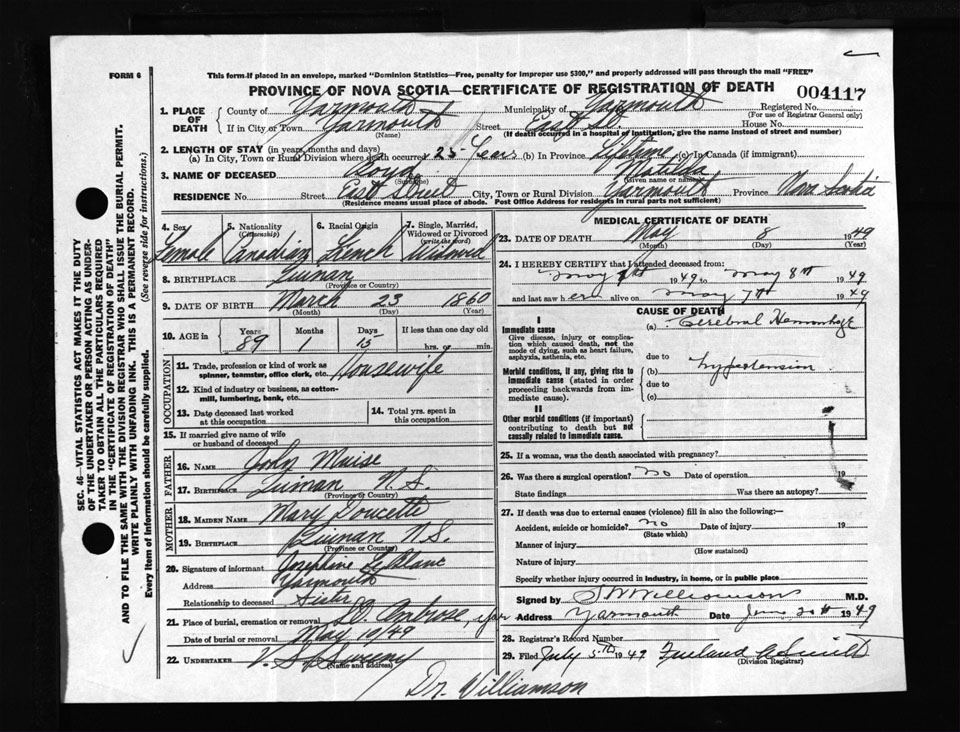 FORM 6
This form if placed in an envelope, marked "Dominion Statistics—Free, penalty for improper use $300," and properly addressed will pass through the mail "FREE"
PROVINCE OF NOVA SCOTIA—CERTIFICATE OF REGISTRATION OF DEATH 004117
1. PLACE OF DEATH County of Yarmouth Municipality of Yarmouth Registered No.
(For use of Registrar General only)
If in City or Town Yarmouth Street East St. House No.
(Name) (If death occurred in a hospital of institution, give the name instead of street and number)
2. LENGTH OF STAY (in years, months and days)
(a) In City, Town or Rural Division where death occurred 25 Years (b) In Province Lifetime (c) In Canada (if immigrant)
3. NAME OF DECEASED Matilda
(Surname) (Given name or names)
RESIDENCE No. Street East Street City, Town or Rural Division Yarmouth Province Nova Scotia
(Residence means usual place of abode. Post Office Address for residents in rural parts not sufficient)
4. Sex 5. Nationality (Citizenship) 6. Racial Origin 7. Single, Married, Widowed or Divorced (write the word)
Female Canadian French Widowed
8. BIRTHPLACE Quinan
(Province or Country)
9. DATE OF BIRTH March 23 1860
(Month) (Day) (Year)
10. AGE in Years Months Days If less than one day old
89 1 15 hrs. or min.
OCCUPATION
11. Trade, profession or kind of work as spinner, teamster, office clerk, etc. Housewife
12. Kind of industry or business, as cotton-mill, lumbering, bank, etc.
13. Date deceased last worked at this occupation
14. Total yrs. spent in this occupation
15. If married give name of wife or husband of deceased
FATHER
16. NAME John Muise
17. BIRTHPLACE Quinan N.S.
(Province or Country)
MOTHER
18. MAIDEN NAME Mary Doucette
19. BIRTHPLACE Quinan N.S.
(Province or Country)
20. Signature of informant Josephine LeBlanc
Address Yarmouth
Relationship to deceased Sister
21. Place of burial, cremation or removal St. Ambrose, Yar
Date of burial or removal May 10/49
22. UNDERTAKER V. S. Sweeny
(Name and address)
Dr. Williamson
MEDICAL CERTIFICATE OF DEATH
23. DATE OF DEATH May 8 1949
(Month) (Day) (Year)
24. I HEREBY CERTIFY that I attended deceased from:
1949 to May 8th 1949
and last saw her alive on May 7th 1949
CAUSE OF DEATH
I
Immediate cause (a) Cerebral Hemorrhage
Give disease, injury or complication which caused death, not the mode of dying, such as heart failure, asphyxia, asthenia, etc.
due to
Morbid conditions, if any, giving rise to immediate cause (stated in order proceeding backwards from immediate cause).
(b) hypertension
due to
(c)
II
Other morbid conditions (if important) contributing to death but not causally related to immediate cause.
25. If a woman, was the death associated with pregnancy?
26. Was there a surgical operation? no Date of operation 19
State findings Was there an autopsy?
27. If death was due to external causes (violence) fill in also the following:—
Accident, suicide or homicide? no Date of injury 19
(State which)
Manner of injury
(How sustained)
Nature of injury
Specify whether injury occurred in industry, in home, or in public place
Signed by Williamson M.D.
Address Yarmouth Date June 20th 1949
28. Registrar's Record Number
29. Filed July 5th 1949
(Division Registrar)
SEC. 46—VITAL STATISTICS ACT MAKES IT THE DUTY
OF THE UNDERTAKER OR PERSON ACTING AS UNDER-
TAKER TO OBTAIN ALL THE PARTICULARS REQUIRED
IN THE "CERTIFICATE OF REGISTRATION OF DEATH"
AND TO FILE THE SAME WITH THE DIVISION REGISTRAR WHO SHALL ISSUE THE BURIAL PERMIT.
WRITE PLAINLY WITH UNFADING INK. THIS IS A PERMANENT RECORD.
Every item of information should be carefully supplied. (See reverse side for instructions.)